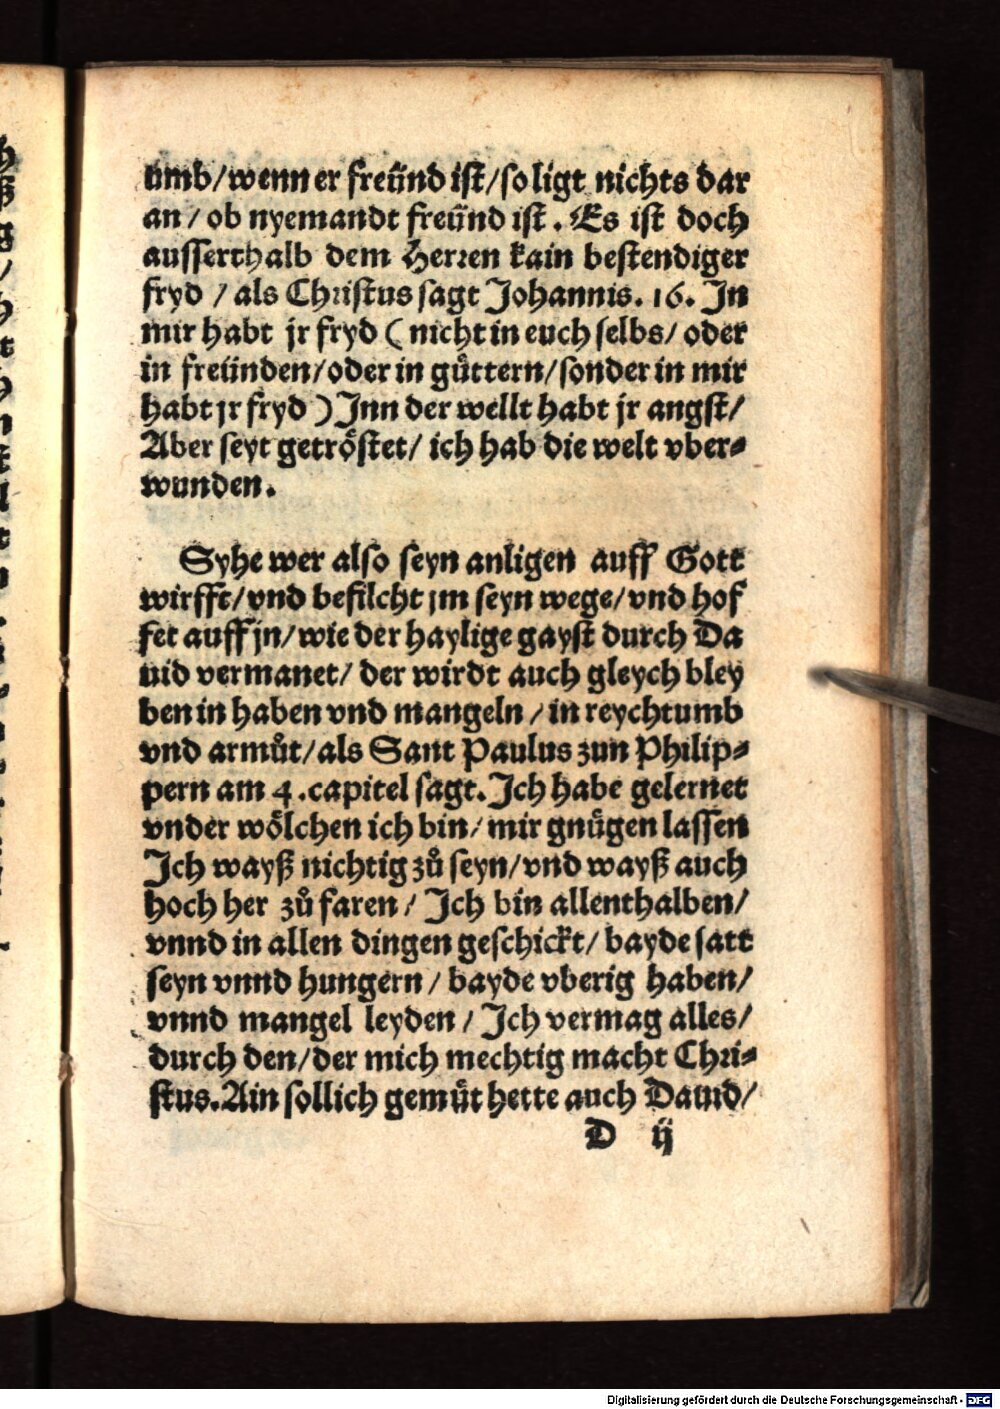 umb/wenn er freünd ist/so ligt nichts dar
an/ob nyemandt freünd ist. Es ist doch
ausserthalb dem Herren kain bestendiger
fryd/als Christus sagt Johannis. 16. In
mir habt jr fryd (nicht in euch selbs/oder
in freünden/oder in gůttern/sonder in mir
habt jr fryd) Inn der wellt habt jr angst/
Aber seyt getröstet/ich hab die welt vber⸗
wunden.
Syhe wer also seyn anligen auff Gott
wirfft/vnd befilcht jm seyn wege/vnd hof
fet auff jn/wie der haylige gayst durch Da
uid vermanet/der wirdt auch gleych bley
ben in haben vnd mangeln/in reychtumb
vnd armůt/als Sant Paulus zun Philip⸗
pern am 4. capitel sagt. Ich habe gelernet
vnder wölchen ich bin/mir gnůgen lassen
Ich wayß nichtig zů seyn/vnd wayß auch
hoch her zů faren/Ich bin allenthalben/
vnnd in allen dingen geschickt/bayde satt
seyn vnnd hungern/bayde vberig haben/
vnnd mangel leyden/Ich vermag alles/
durch den/der mich mechtig macht Chri⸗
stus. Ain sollich gemůt hette auch Dauid/
D ij
Digitalisierung gefördert durch die Deutsche Forschungsgemeinschaft - DFG